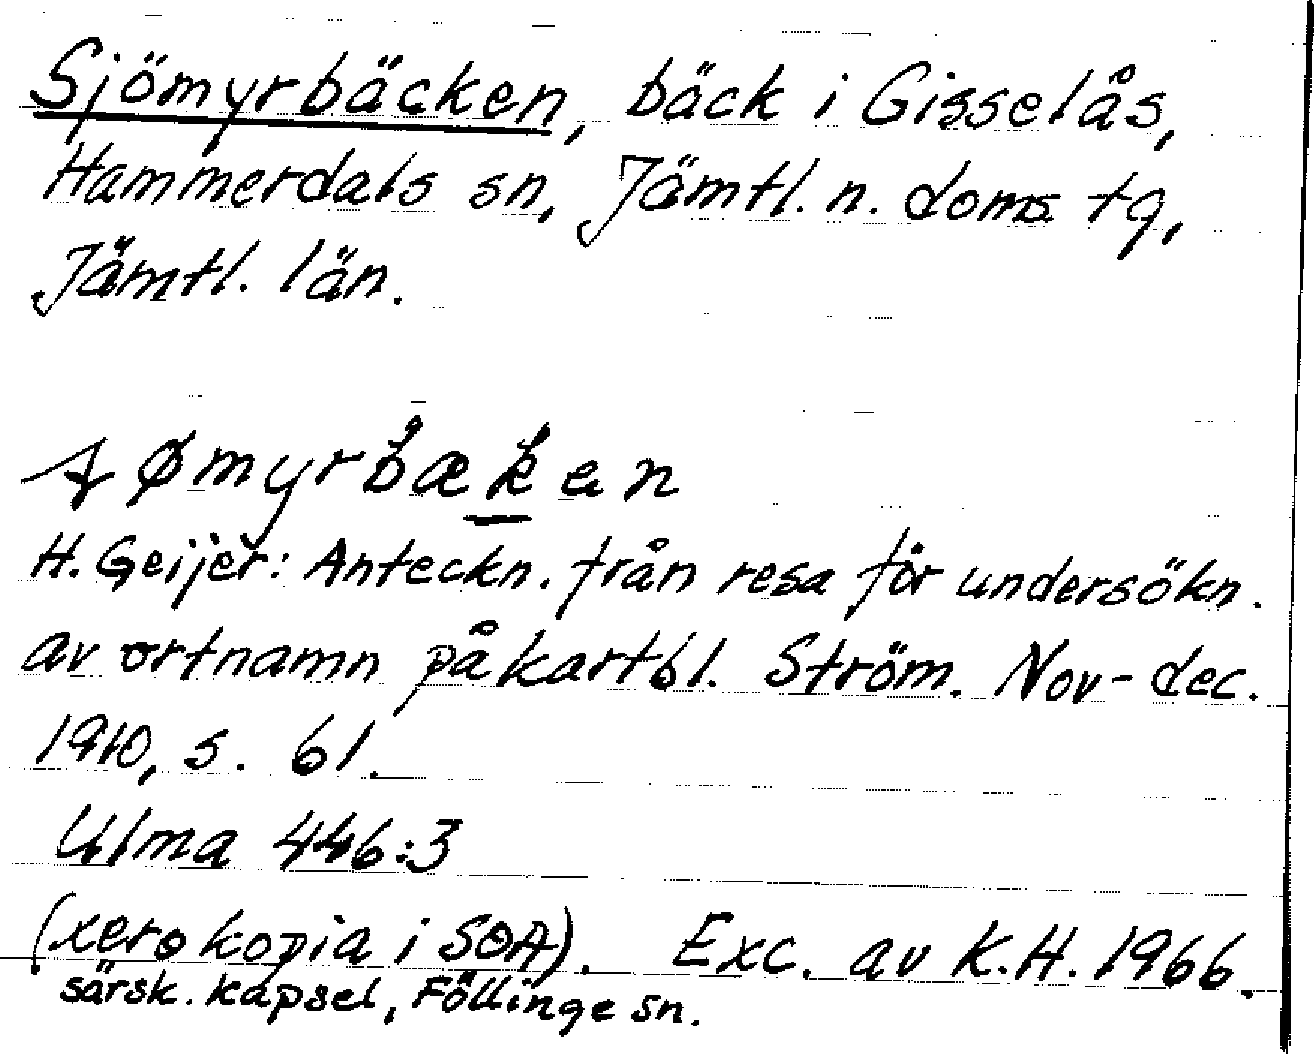 Sjömyrbäcken, bäck i Gisselås,
Hammerdals sn, Jämtl. n. doms. tg,
Jämtl. län.
ømyrbæken
H. Geijer: Anteckn. från resa för undersökn.
av ortnamn på kartbl. Ström. Nov-dec.
1910, s. 61.
Ulma 446:3
(xerokopia i SOA). Exc. av K.H. 1966.
särsk. kapsel, Föllinge sn.